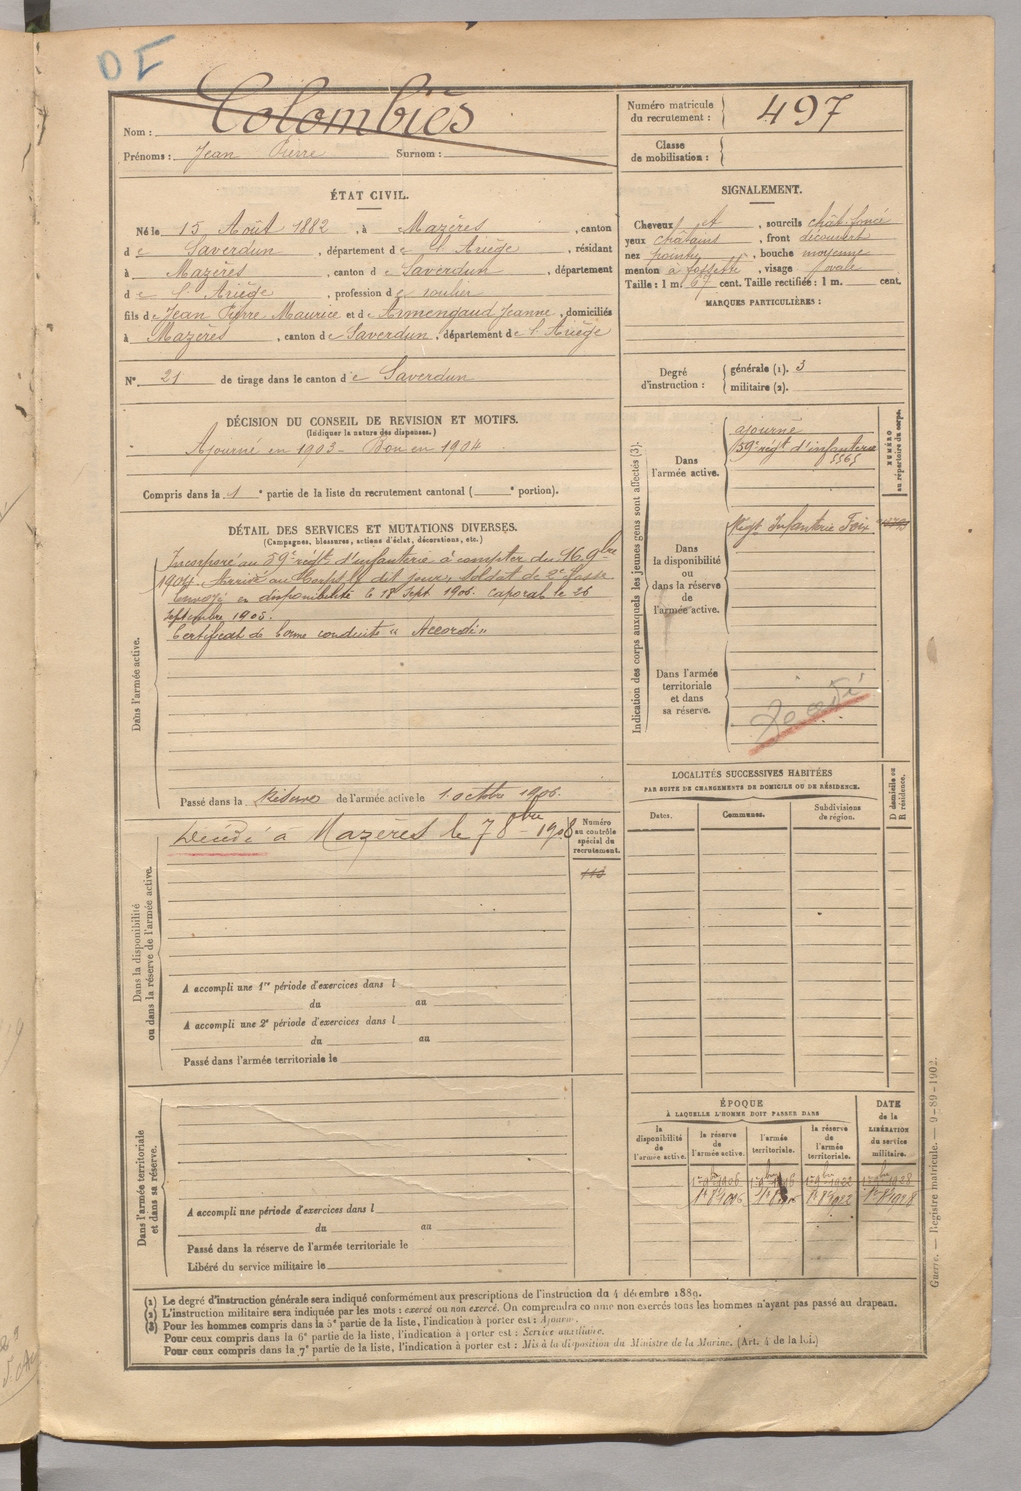 DE
Nom : Colombiès
Prénoms : Jean Pierre Surnom :
Numéro matricule du recrutement : 497
Classe de mobilisation :
ÉTAT CIVIL.
Né le 15 Août 1882, à Mazères, canton
de Saverdun, département de l'Ariège, résidant
à Mazères, canton de Saverdun, département
de l'Ariège, profession de
fils de Jean Pierre Maurice et de Armengaud Jeanne, domiciliés
à Mazères, canton de Saverdun, département de l'Ariège
N° 21 de tirage dans le canton de Saverdun
SIGNALEMENT.
Cheveux et, sourcils chât. foncé
yeux châtains, front découvert
nez pointu, bouche moyenne
menton à fossette, visage ovale
Taille : 1 m. 67 cent. Taille rectifiée : 1 m. cent.
MARQUES PARTICULIÈRES :
Degré d'instruction : générale (1). 3
militaire (2).
DÉCISION DU CONSEIL DE REVISION ET MOTIFS.
(Indiquer la nature des dispenses.)
Ajourné en 1903 - Bon en 1904
Compris dans la 1e partie de la liste du recrutement cantonal ( e portion).
DÉTAIL DES SERVICES ET MUTATIONS DIVERSES.
(Campagnes, blessures, actions d'éclat, décorations, etc.)
Dans l'armée active.
Incorporé au 59e régt d'infanterie à compter du 16 9bre
1904. Arrivé au Corps le dit jour, soldat de 2e classe
Envoyé en disponibilité le 18 Sept 1906. caporal le 26
septembre 1905.
Certificat de bonne conduite "Accordé"
Passé dans la Réserve de l'armée active le 1 octbre 1906.
Indication des corps auxquels les jeunes gens sont affectés (3).
NUMÉRO au répertoire du corps.
Dans l'armée active.
ajourné
59e régt d'infanterie
5565
Dans la disponibilité ou dans la réserve de l'armée active.
Régt Infanterie Foix
Dans l'armée territoriale et dans sa réserve.
Décédé
Dans la disponibilité ou dans la réserve de l'armée active.
Décédé à Mazères le 7 8bre 1908
Numéro au contrôle spécial du recrutement.
A accompli une 1re période d'exercices dans l
du au
A accompli une 2e période d'exercices dans l
du au
Passé dans l'armée territoriale le
LOCALITÉS SUCCESSIVES HABITÉES
PAR SUITE DE CHANGEMENTS DE DOMICILE OU DE RÉSIDENCE.
Dates. Communes. Subdivisions de région. D domicile ou R résidence.
Dans l'armée territoriale et dans sa réserve.
A accompli une période d'exercices dans l
du au
Passé dans la réserve de l'armée territoriale le
Libéré du service militaire le
ÉPOQUE
À LAQUELLE L'HOMME DOIT PASSER DANS
la disponibilité de l'armée active.
la réserve de l'armée active.
l'armée territoriale.
la réserve de l'armée territoriale.
DATE de la LIBÉRATION du service militaire.
(1) Le degré d'instruction générale sera indiqué conformément aux prescriptions de l'instruction du 4 décembre 1889.
(2) L'instruction militaire sera indiquée par les mots : exercé ou non exercé. On comprendra comme non exercés tous les hommes n'ayant pas passé au drapeau.
(3) Pour les hommes compris dans la 5e partie de la liste, l'indication à porter est : Ajourné.
Pour ceux compris dans la 6e partie de la liste, l'indication à porter est : Service auxiliaire.
Pour ceux compris dans la 7e partie de la liste, l'indication à porter est : Mis à la disposition du Ministre de la Marine. (Art. 4 de la loi.)
Guerre. — Registre matricule. — 9-89-1902.